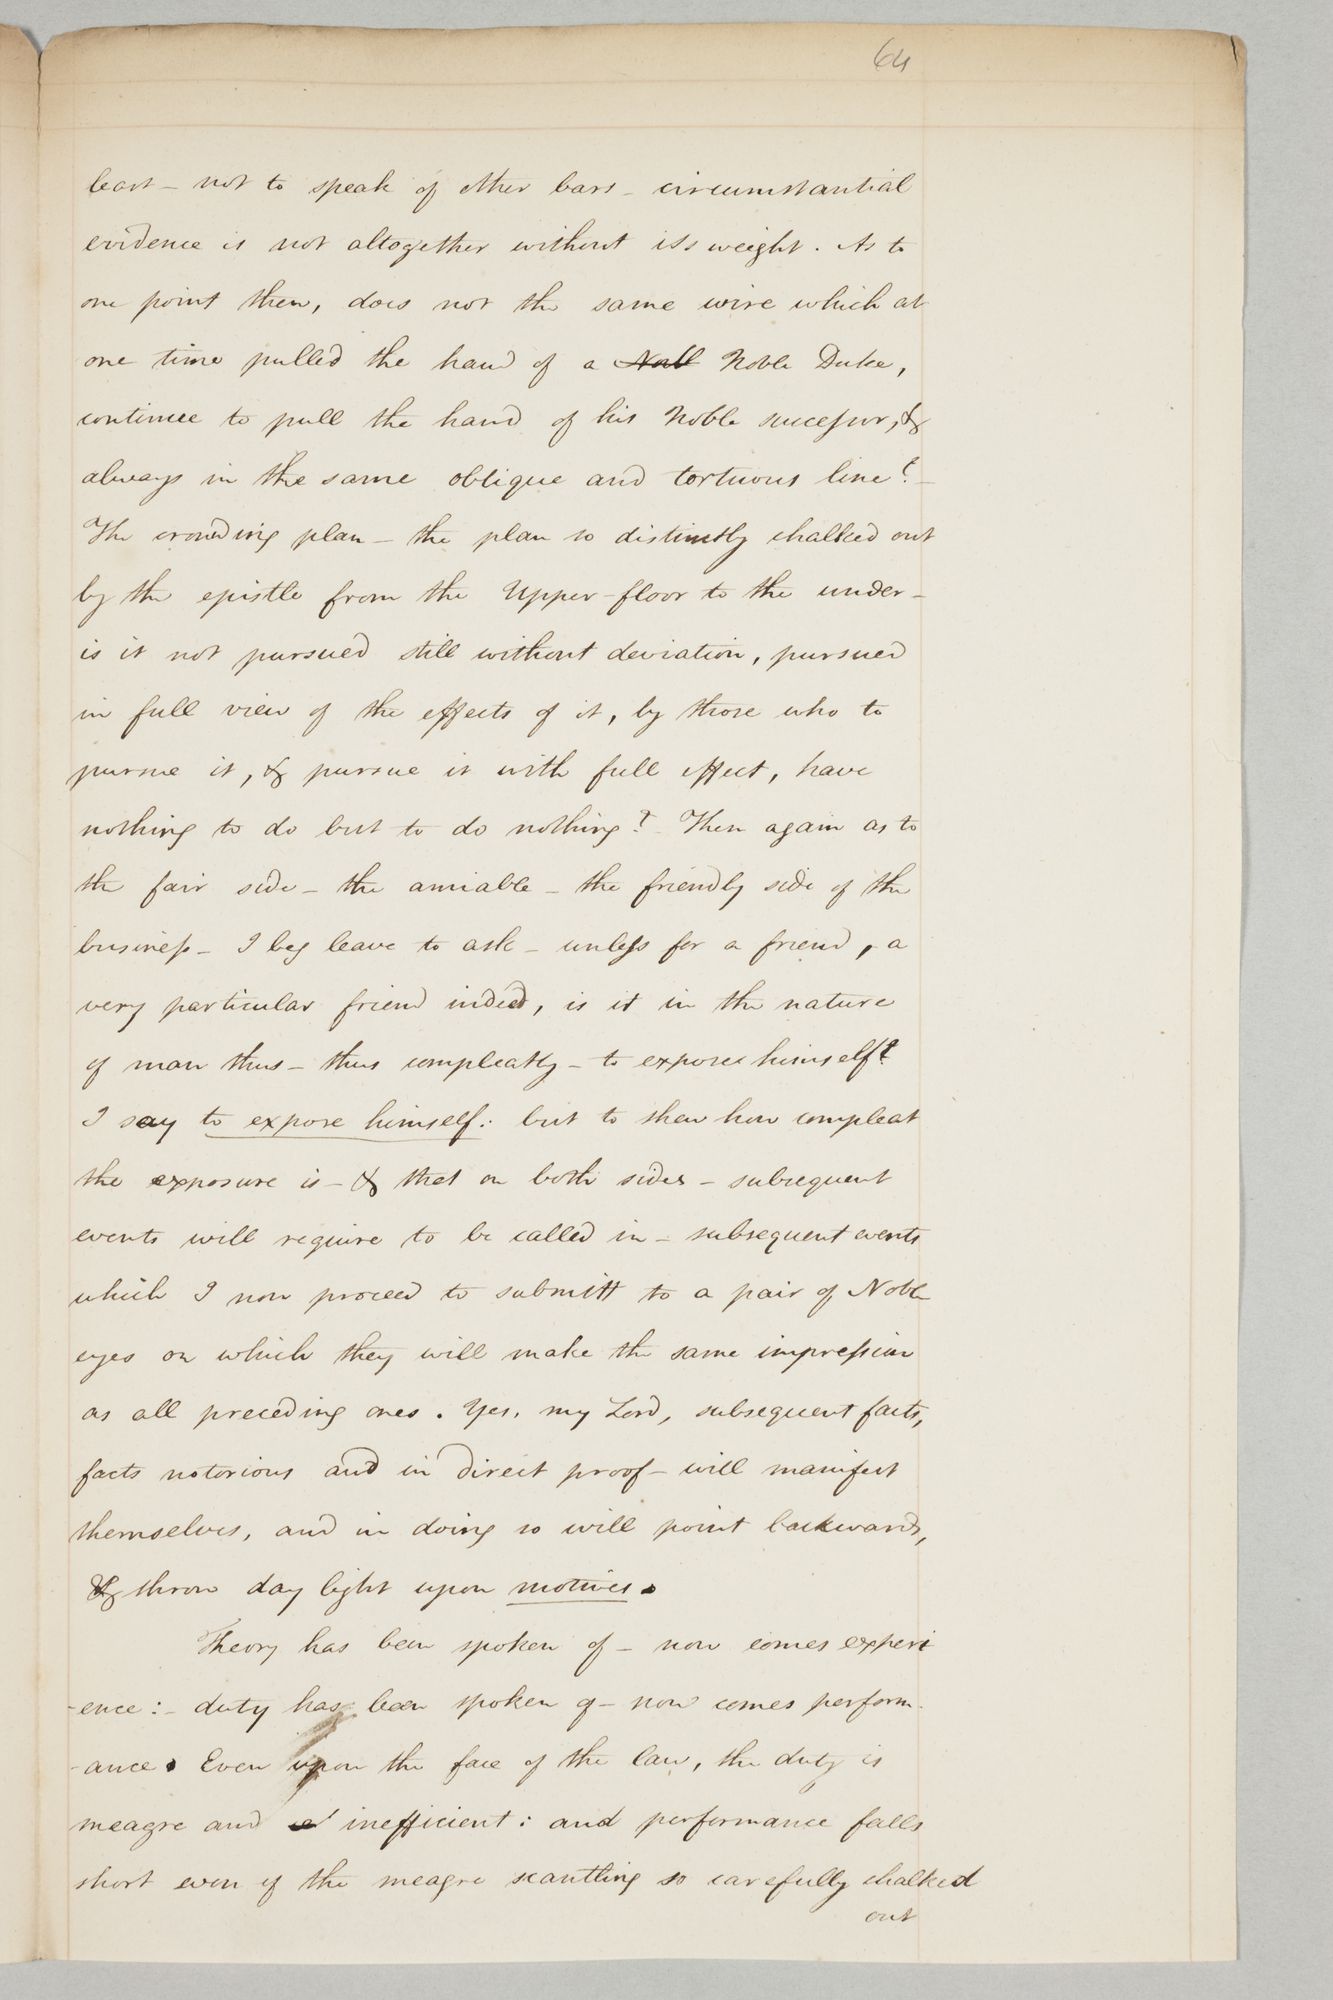 64
least – not to speak of other bars – circumstantial
evidence is not altogether without its weight. As to
one point then, does not the same wire which at
one time pulled the hand of a Nobl Noble Duke,
continue to pull the hand of his Noble successor, &
always in the same oblique and tortuous line? –
The crowding plan – the plan so distinctly chalked out
by the epistle from the Upper-floor to the under –
is it not pursued still without deviation, pursued
in full view of the effects of it, by those who to
pursue it, & pursue it with full effect, have
nothing to do but to do nothing? Then again as to
the fair side – the amiable – the friendly side of the
business – I beg leave to ask – unless for a friend, a
very particular friend indeed, is it in the nature
of man thus – thus compleatly – to expose himself?
I say to expose himself: but to shew how compleat
the exposure is – & that on both sides – subsequent
events will require to be called in – subsequent events
which I now proceed to submitt to a pair of Noble
eyes on which they will make the same impression
as all preceding ones. Yes, my Lord, subsequent facts,
facts notorious and in direct proof – will manifest
themselves, and in doing so will point backwards,
& throw day light upon motives.
Theory has been spoken of – now comes experi
-ence: – duty has been spoken of – now comes perform-
-ance. Even upon the face of the law, the duty is
meagre and inefficient: and performance falls
short even of the meagre scantling so carefully chalked
out